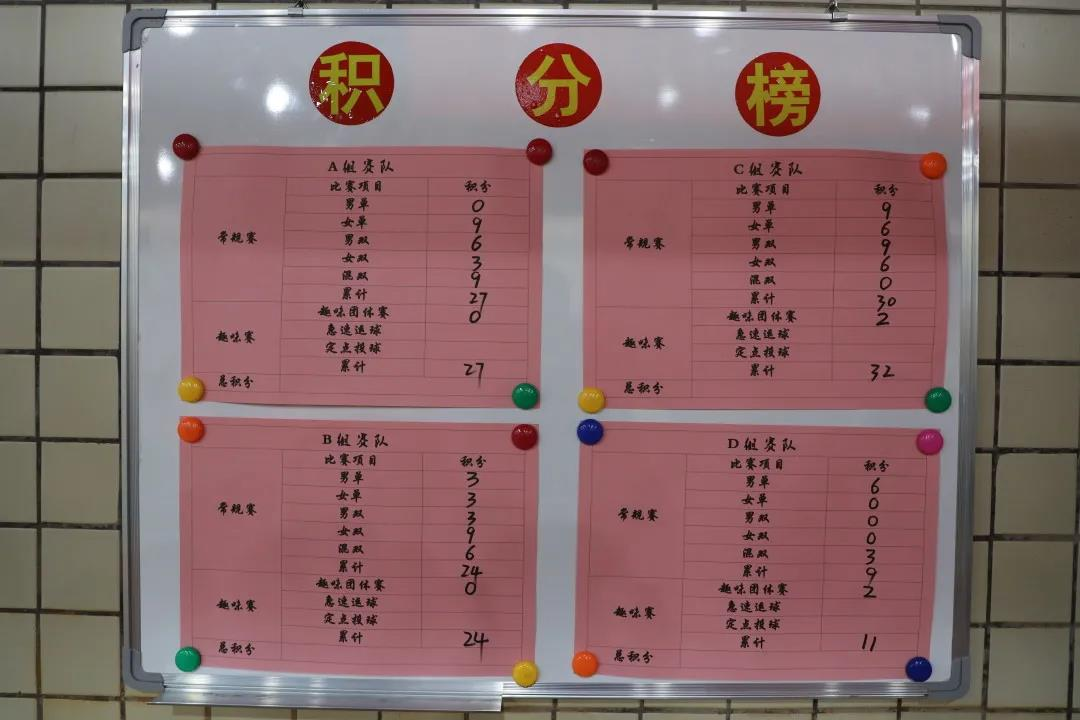 积 分 榜
A组赛队
比赛项目 积分
男单 0
女单 9
常规赛 男双 6
女双 3
混双 9
累计 27
趣味团体赛 0
趣味赛 急速运球
定点投球
累计 27
总积分
C组赛队
比赛项目 积分
男单 9
女单 6
常规赛 男双 9
女双 6
混双 0
累计 30
趣味团体赛 2
趣味赛 急速运球
定点投球
累计 32
总积分
B组赛队
比赛项目 积分
男单 3
女单 3
常规赛 男双 3
女双 9
混双 6
累计 24
趣味团体赛 0
趣味赛 急速运球
定点投球
累计 24
总积分
D组赛队
比赛项目 积分
男单 6
女单 0
常规赛 男双 0
女双 0
混双 3
累计 9
趣味团体赛 2
趣味赛 急速运球
定点投球
累计 11
总积分